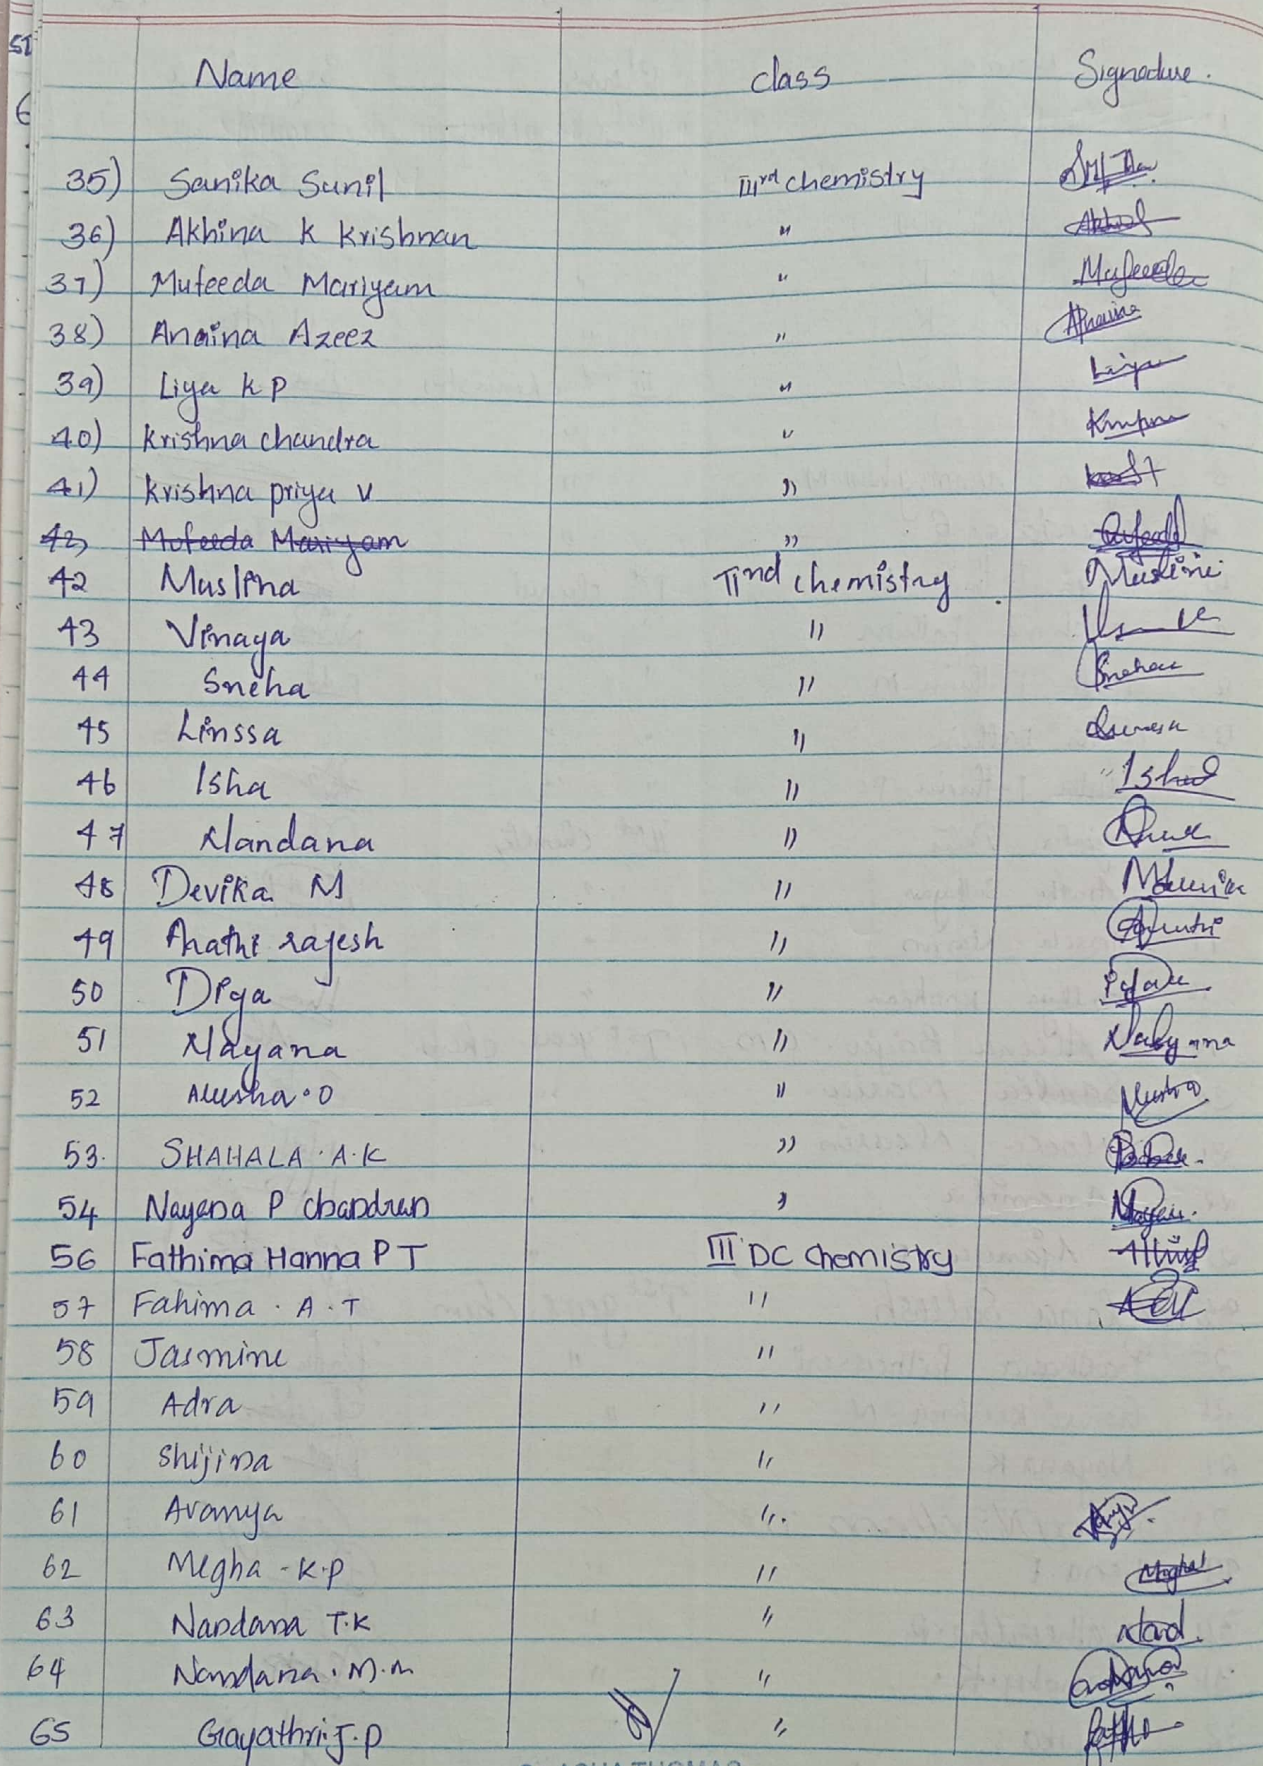 Name class Signature.
35) Sanika Sunil IIIrd chemistry
36) Akhina K Krishnan "
37) Mufeeda Mariyam " Mufeeda
38) Anaina Azeez "
39) Liya K P " Liya
40) Krishna chandra "
41) Krishna priya V "
42) Mufeeda Mariyam "
42 Muslina IInd chemistry
43 Vinaya "
44 Sneha " Sneha
45 Linssa "
46 Isha " Isha
47 Nandana "
48 Devika M "
49 Arathi rajesh "
50 Diya "
51 Nayana " Nayana
52 Anusha . O "
53. SHAHALA . A . K "
54 Nayana P Chandran "
56 Fathima Hanna P T III DC Chemistry
57 Fahima . A . T "
58 Jasmine "
59 Adra "
60 Shijina "
61 Aranya "
62 Megha - K.P " Megha
63 Nandana T.K " Nand.
64 Nandana . M.M "
65 Gayathri.J.P "